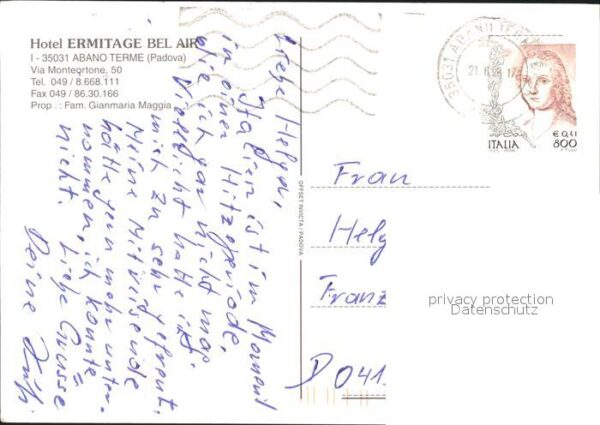 Hotel ERMITAGE BEL AIR
I - 35031 ABANO TERME (Padova)
Via Monteortone, 50
Tel. 049 / 8.668.111
Fax 049 / 86.30.166
Prop.: Fam. Gianmaria Maggia
Liebe Helga,
Italien ist im Moment
in einer Hitzeperiode,
die ich gar nicht mag
Vielleicht hatte ich
mich zu sehr gefreut.
Meine Mitreisende
hätte gern mehr unter-
nommen, ich konnte
nicht.
Liebe Grüsse
Deine
OFFSET INVICTA / PADOVA
35031 ABANO TERME
ITALIA
€ 0,41
800
Frau
Helg
Franz
D 041
privacy protection
Datenschutz